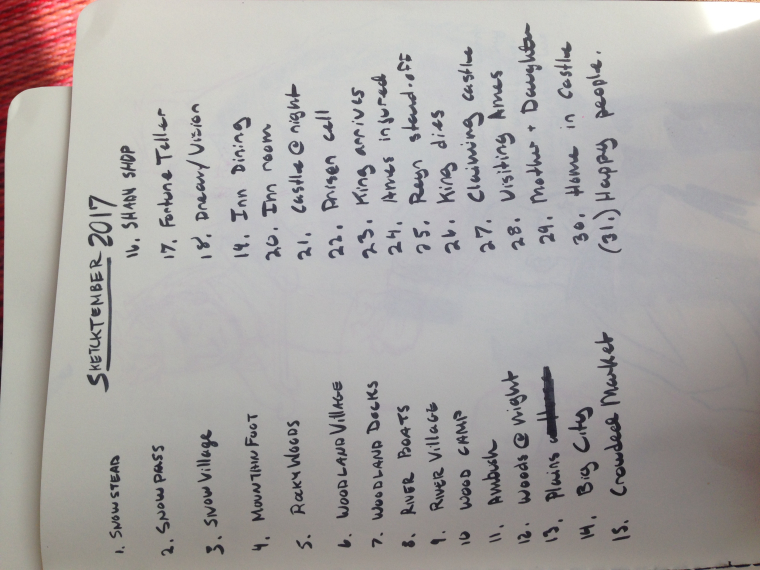 SKETCKTEMBER 2017
1. SNOWSTEAD
2. SNOWPASS
3. SNOWVillage
4. MOUNTAIN FOOT
5. ROCKY WOODS
6. WOODLAND VILLAGE
7. WOODLAND DOCKS
8. RIVER BOATS
9. RIVER VIllage
10 WOOD CAMP
11. Ambush
12. Woods @ night
13. Plains
14. Big City
15. Crowded Market
16. SHADY SHOP
17. Fortune Teller
18. Dream/Vision
19. Inn Dining
20. Inn room
21. Castle @ night
22. Prison cell
23. King arrives
24. Ames injured
25. Reyn stand-off
26. King dies
27. Claiming castle
28. Visiting Ames
29. Mother + Daughter
30. Home in Castle
(31.) Happy people.